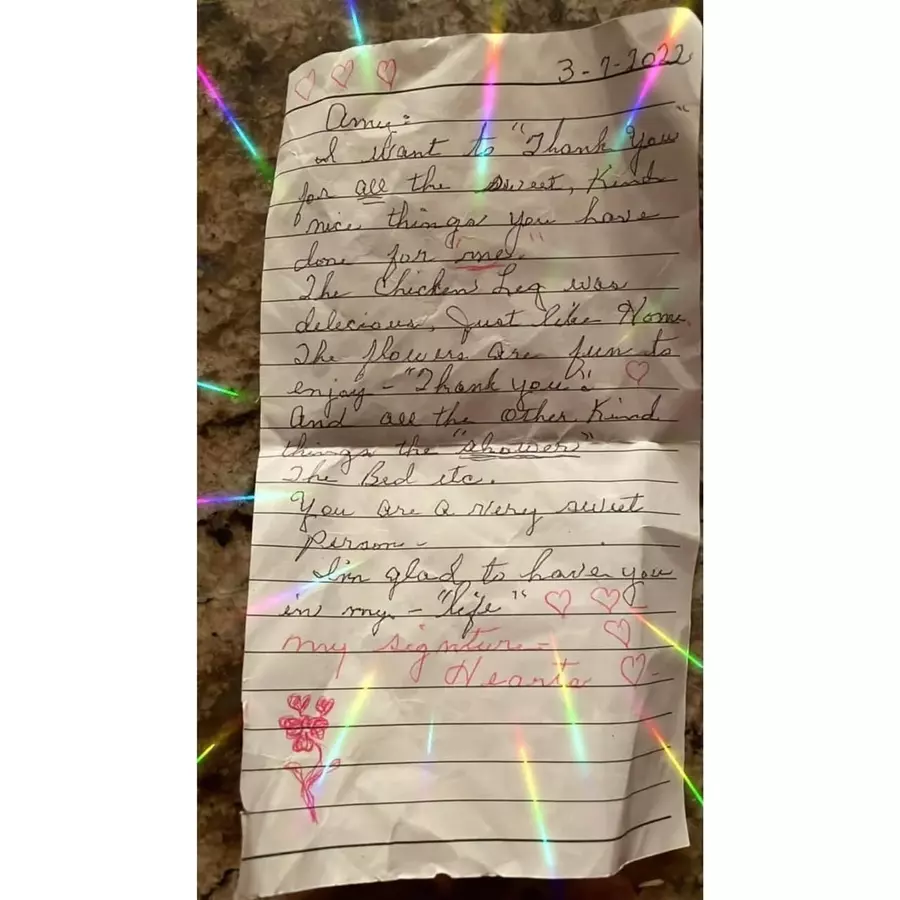 3-7-2022
Amy:
I want to "Thank You"
for all the sweet, Kind
nice things you have
done for "me."
The Chicken Leg was
delecious, Just like Home.
The flowers are fun to
enjoy - "Thank you".
And all the other Kind
things the "shower"
The Bed etc.
You are a very sweet
person -
I'm glad to have you
in my - "life"
my signture -
Hearts